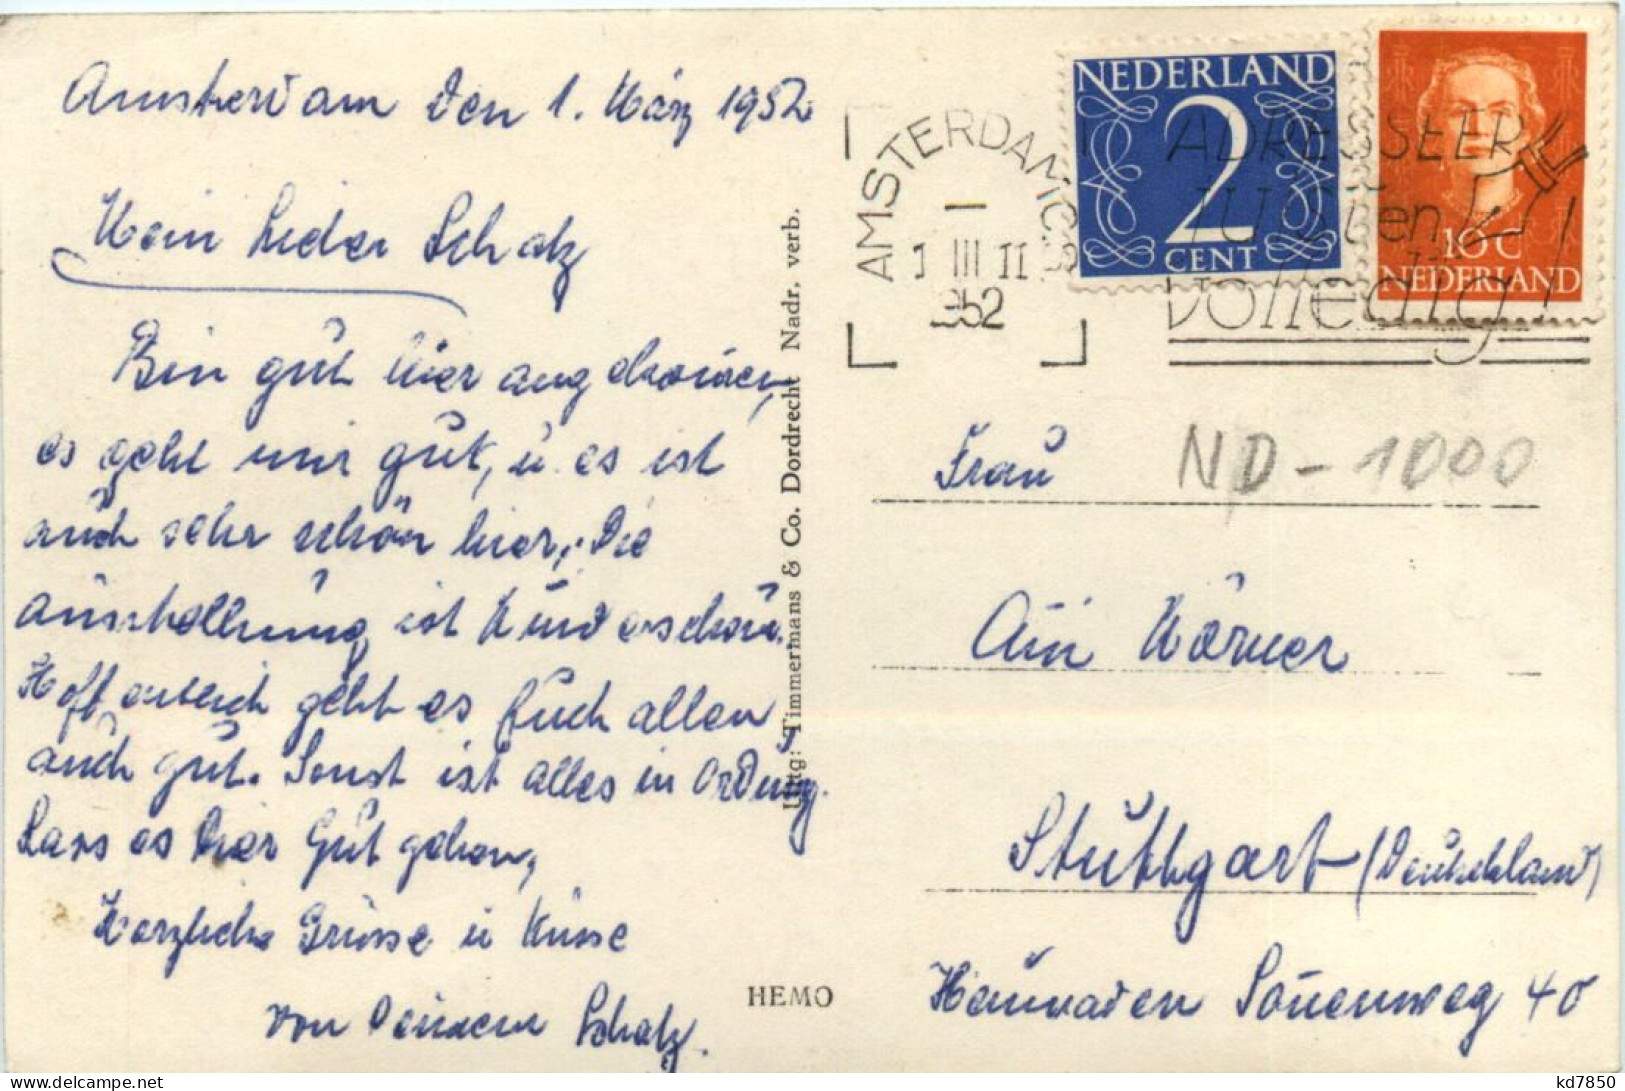 Amsterdam den 1. März 1952
Mein Lieber Schatz
Bin gut hier angekommen,
es geht mir gut, u. es ist
auch sehr schön hier, Die
Ausstellung ist
Hoffentlich geht es Euch allen
auch gut. Sonst ist alles in Ordung.
Lass es Dier Gut gehen,
Herzliche Grüsse u Küsse
von Deinem Schatz.
Uitg: Timmermans & Co. Dordrecht Nadr. verb.
HEMO
AMSTERDAM CS
1 III 11
1952
NEDERLAND
2
CENT
10 C
NEDERLAND
ADRESSEER
JUIST en
volledig!
ND-1000
Frau
Körner
Stuttgart (Deutschland)
40
kd7850